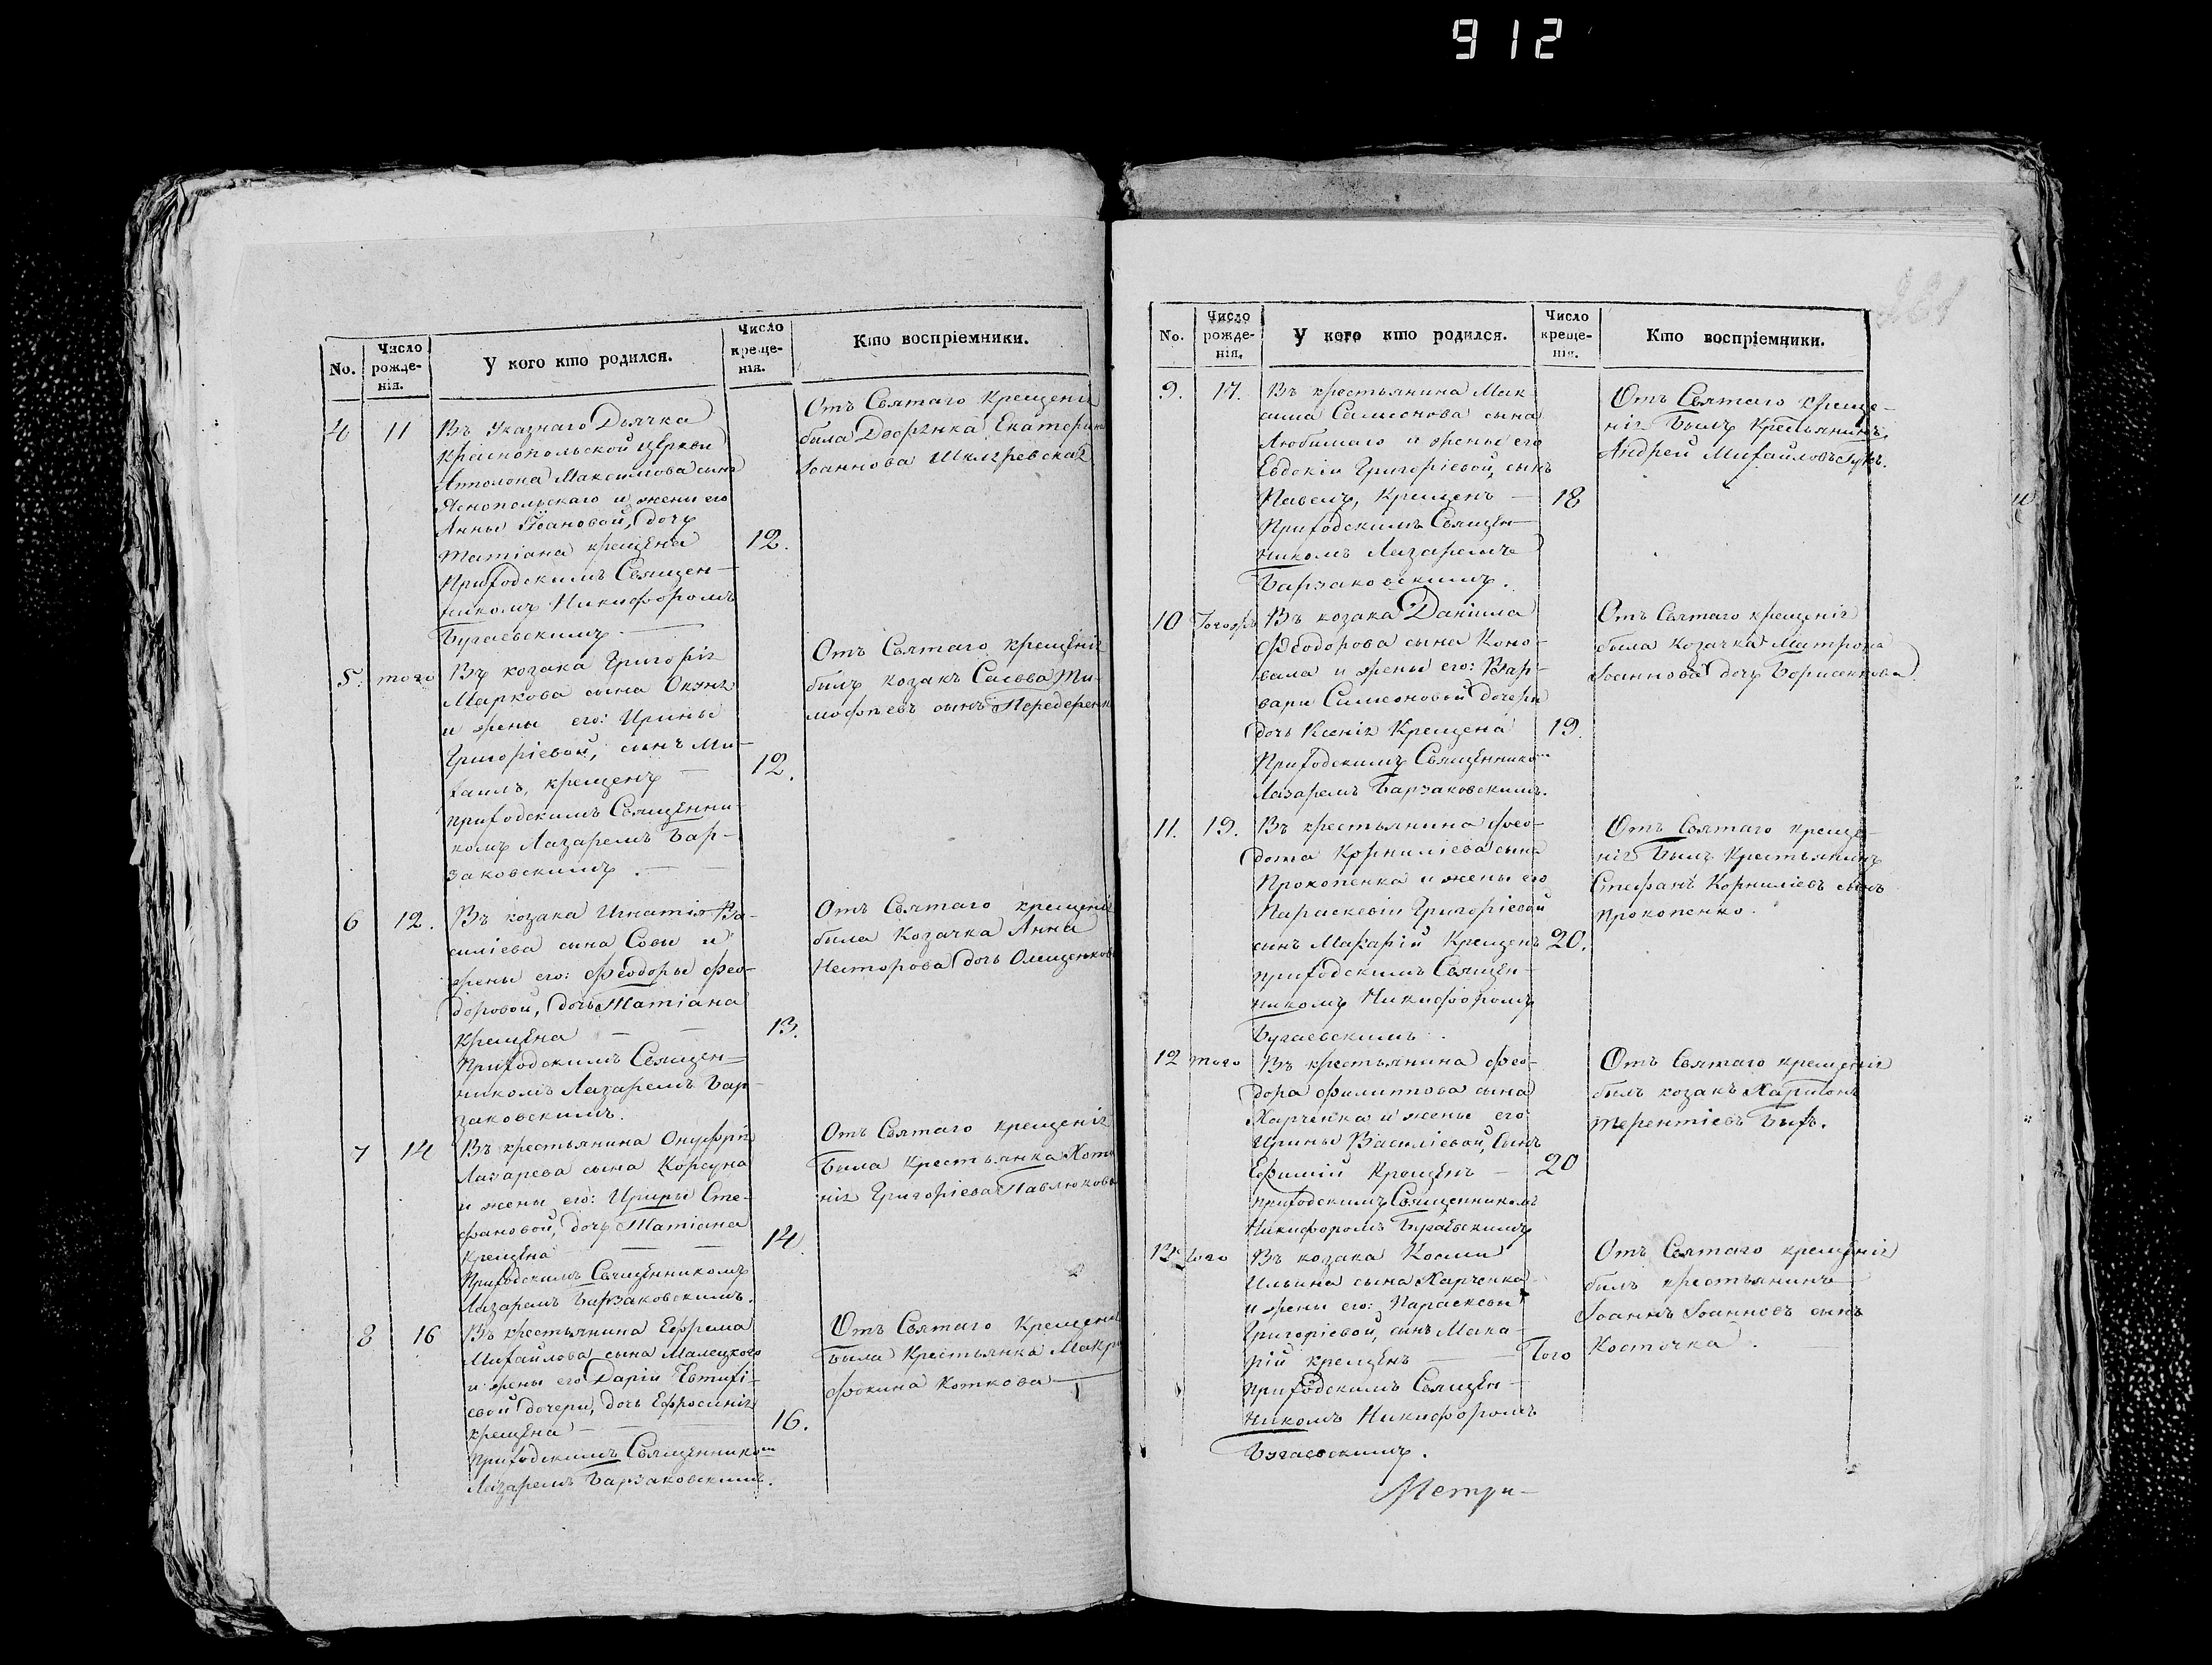 912
No.
Число рожде-нія.
У кого кто родился.
Число креще-нія.
Кто воспріемники.
4
11
Въ Указнаго Дьячка
Краснопольской Церкви
Антонова Максимова сына
Яснопольскаго и жены его
Анны Іоановой, дочь
Татіана крещена
12.
Приходскимъ Священ-
никомъ Никифоромъ
Бугаевскимъ
Отъ Святаго Крещенія
была Дворянка Екатерина
Іоаннова
5.
того
Въ козака Григорія
Маркова сына
и жены его: Ирины
Григоріевой, сынъ Ми-
хаилъ, крещенъ
12.
приходскимъ Священни-
комъ Лазаремъ Бар-
заковскимъ.
Отъ Святаго Крещенія
былъ козакъ Савва Ти-
мофѣевъ сынъ
6
12.
Въ козака Игнатія Ва-
силіева сына Совы и
жены его: Феодоры Фео-
доровой, дочь Татіана
крещена
13.
Приходскимъ Священ-
никомъ Лазаремъ Бар-
заковскимъ.
Отъ Святаго крещенія
была Козачка Анна
Несторова дочь
7
14
Въ крестьянина Онуфрія
Лазарева сына Корсуна
и жены его: Ирины Сте-
фановой, дочь Татіана
Крещена
14.
Приходскимъ Священникомъ
Лазаремъ Барзаковскимъ.
Отъ Святаго крещенія
Была Крестьянка
нія Григоріева Павлюкова
8
16
Въ крестьянина Ефрема
Михайлова сына Малецкого
и жены его Дарій Евтихі-
евой дочери, дочь Ефросинія
крещена
16.
Приходскимъ Священником
Лазаремъ Барзаковскимъ.
Отъ Святаго Крещенія
была Крестьянка
Фокина Коткова
No.
Число рожде-нія.
У кого кто родился.
Число креще-нія.
Кто воспріемники.
9.
17.
Въ крестьянина Мак-
сима Симеонова сына
Любимаго и жены его
Евдокіи Григоріевой, сынъ
Павелъ, Крещенъ
18
Приходскимъ Священ-
никомъ Лазаремъ
Барзаковскимъ.
Отъ Святаго креще-
нія Былъ Крестьянинъ
Андрей Михайловъ
10
Въ козака Даніила
Феодорова сына Коно-
вала и жены его: Вар-
вари Симеоновой дочери
дочь Ксенія Крещена
19.
Приходскимъ Священнико
Лазаремъ Барзаковскимъ.
Отъ Святаго крещенія
была Козачка Матрона
Іоаннова дочь Борисенкова
11.
19.
Въ крестьянина Фео-
дота Корниліева сына
Прокопенка и жены его
Параскевіи Григоріевой
сынъ Макарій Крещенъ
20.
приходскимъ Священ-
никомъ Никифоромъ
Бугаевскимъ.
Отъ Святаго креще-
нія Былъ Крестьянинъ
Стефанъ Корниліевъ сынъ
Прокопенко.
12
того
Въ крестьянина Фео-
дора Филиппова сына
Харченка и жены его
Ирины Василіевой, Сынъ
Ефимій Крещенъ
20
приходскимъ Священникомъ
Никифоромъ Бугаевскимъ
Отъ Святаго крещенія
былъ козакъ Харитонъ
Терентіевъ
13
того
Въ козака Космы
Ильина сына Харченка
и жены его: Параскевы
Григоріевой, сынъ Мака-
рій крещенъ
Того
приходскимъ Священ-
никомъ Никифоромъ
Бугаевскимъ.
Отъ Святаго крещенія
былъ крестьянинъ
Іоаннъ Іоанновъ сынъ
Косточка.
Метри-